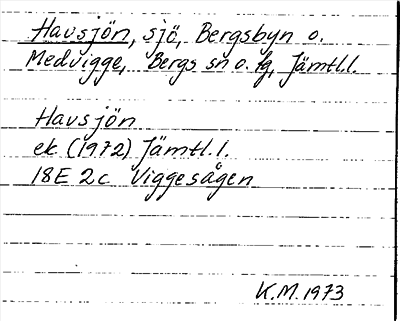 Havsjön, sjö, Bergsbyn o.
Medvigge, Bergs sn o. tg, Jämtl.l.
Havsjön
ek (1972) Jämtl.l.
18E 2c Viggesågen
K.M. 1973